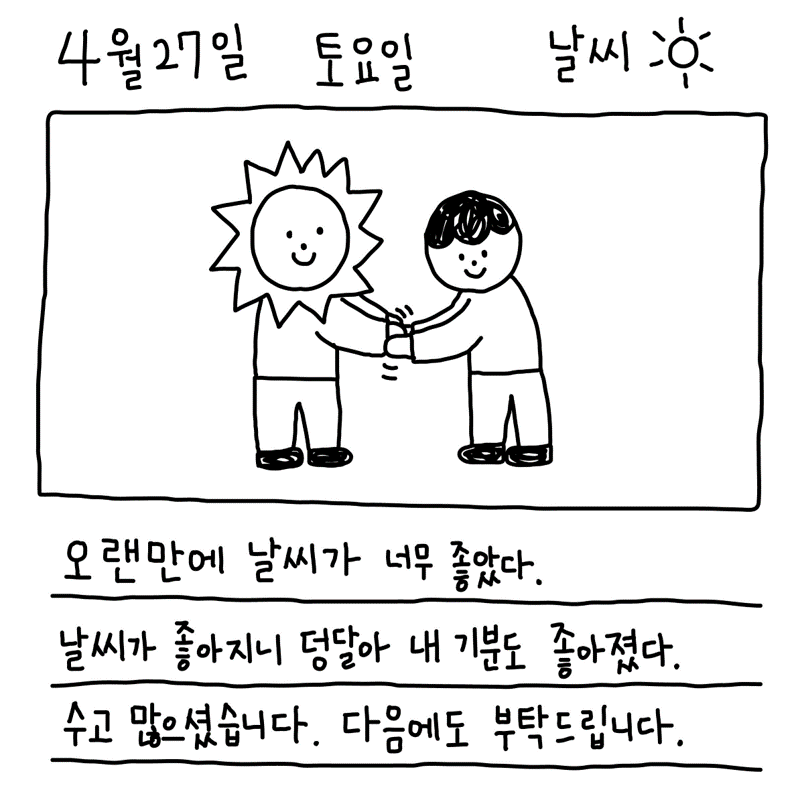 4월 27일 토요일 날씨
오랜만에 날씨가 너무 좋았다.
날씨가 좋아지니 덩달아 내 기분도 좋아졌다.
수고 많으셨습니다. 다음에도 부탁드립니다.